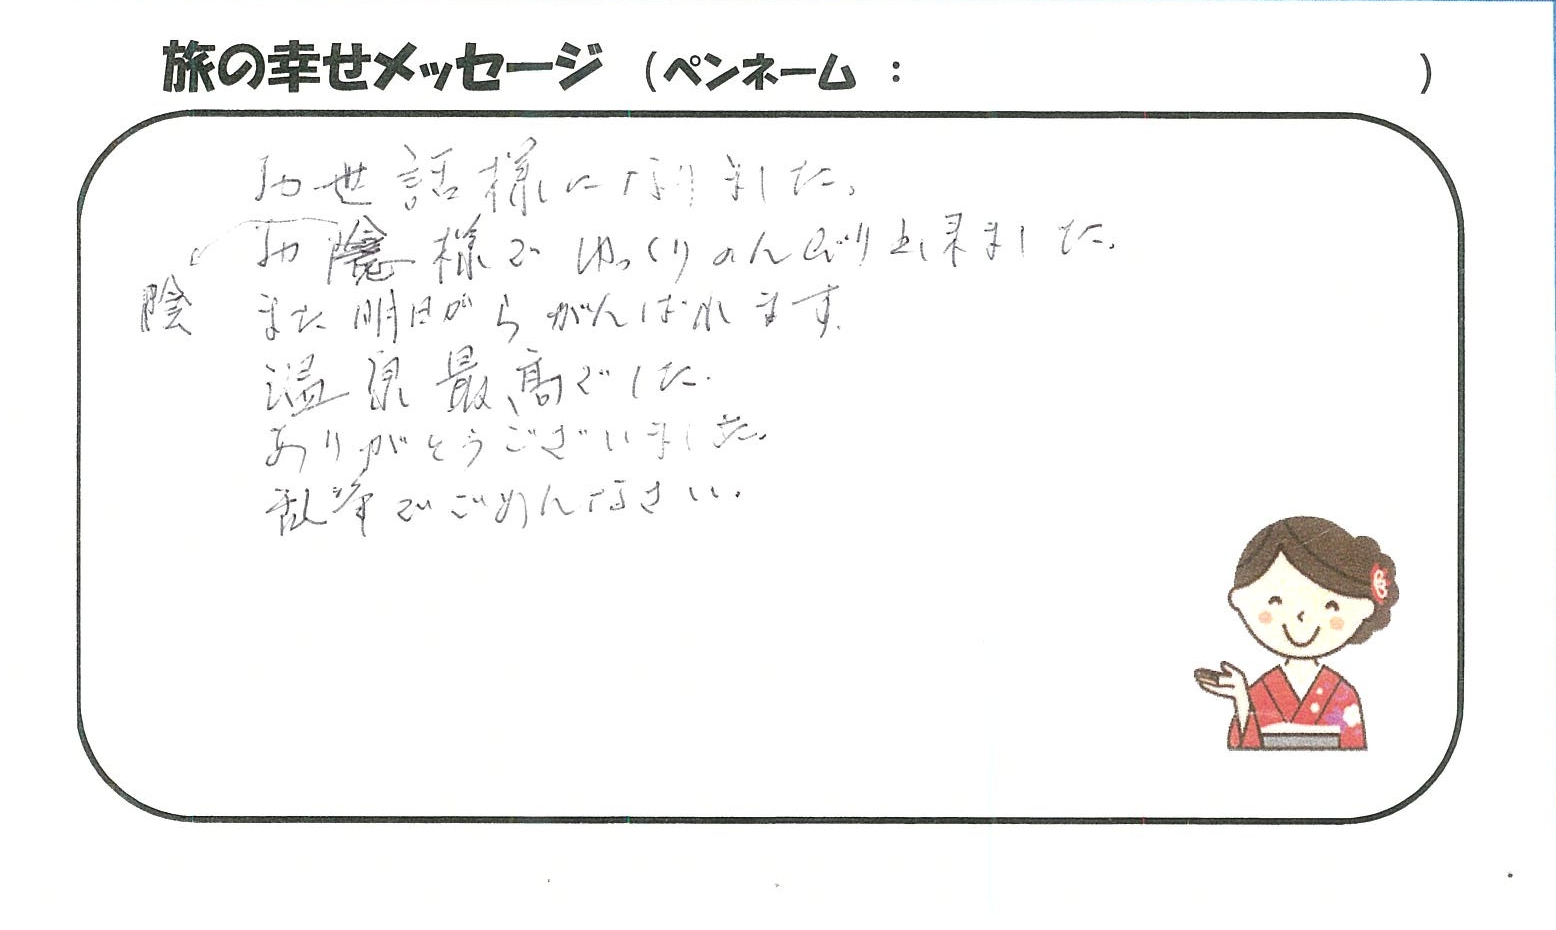 旅の幸せメッセージ (ペンネーム : )
お世話様になりました。
お陰様でゆっくりのんびり出来ました。
陰
また明日からがんばれます。
温泉最高でした。
ありがとうございました。
乱筆でごめんなさい。